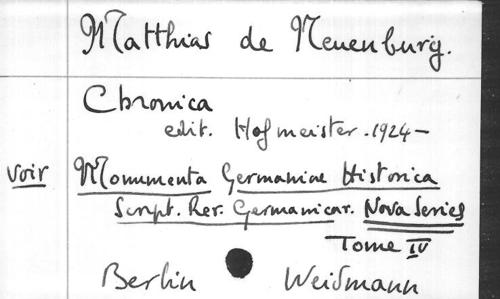 Matthias de Neuenburg.
Chronica
edit. Hofmeister. 1924-
voir Monumenta Germaniae Historica
Script. Rer. Germanicar. Nova Series
Tome IV
Berlin Weidmann